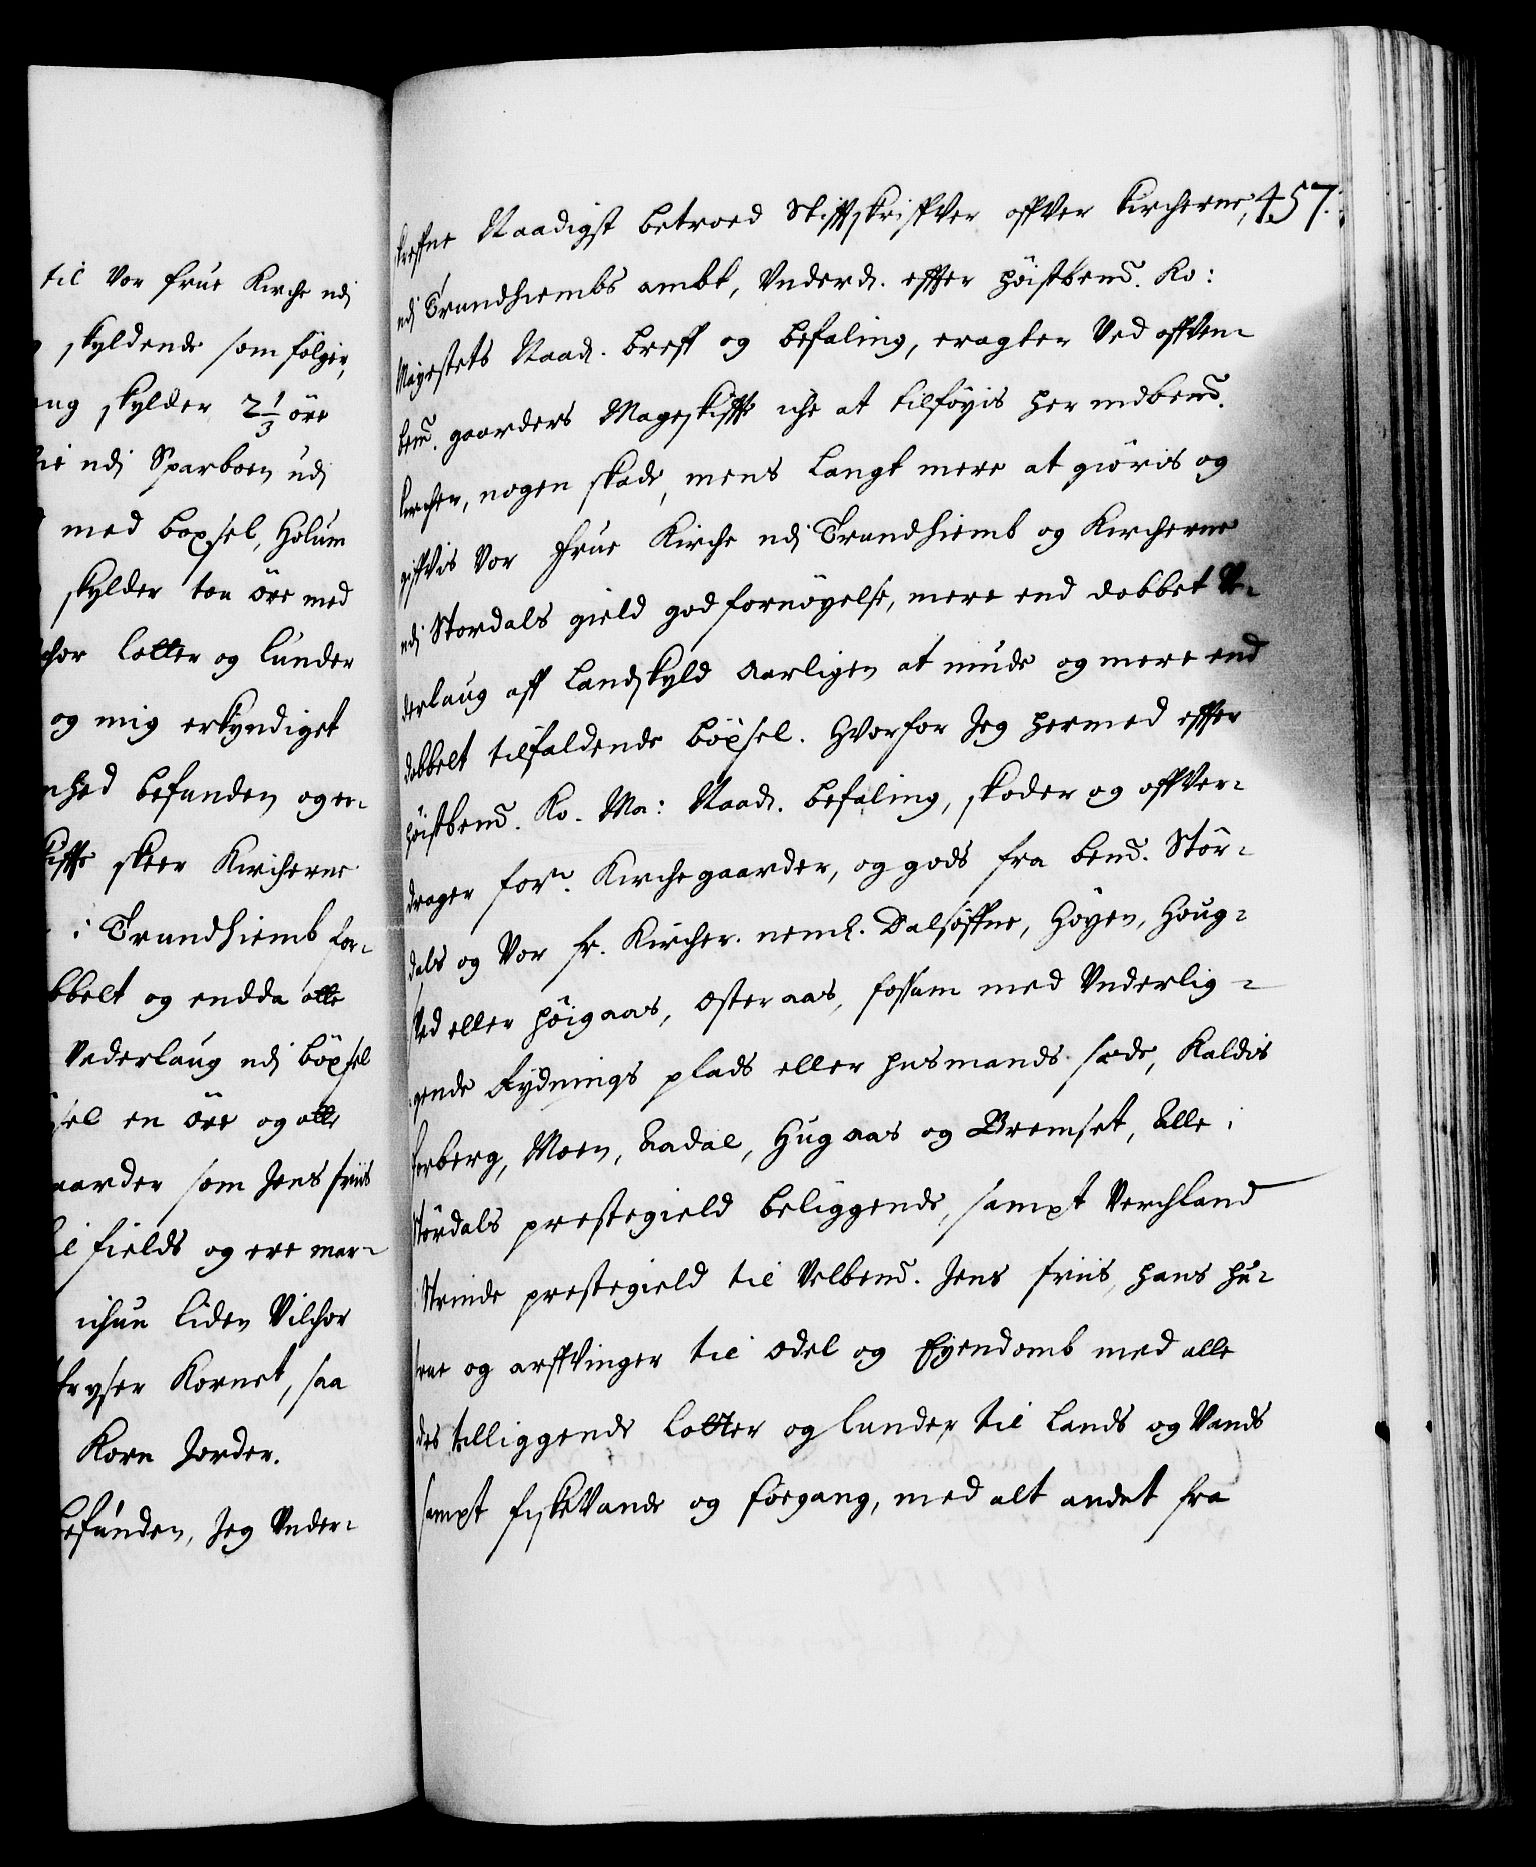 til Vor frue Kirche udj
skyldende som følger,
skylder 2 1/3 öre
udj Sparboen udj
med boxsel, Holum
skylder tou öre med
lotter og lunder
og mig erkyndiget
befunden og er-
skeer Kircherne
i Trundhiemb for-
og endda otte
Vederlaug udj böxsel
en öre og otte
som Jens friis
fields og ere mar-
ichun liden Vilchor
Kornet, saa
Korn Jorder.
befunden, Jeg Vnder-
457.
skreffne Naadigst betroed Stiftskriffver offver Kircherne,
udj Trundhiembs ambt, Vnderd. effter höistbemd. Ko:
Mayestets Naad. breff og befaling, eragter Ved offven-
bemd. gaarders Mageskiffte iche at tilföyis her udbemd.
kircher, nogen skade, mens langt mere at giöris og
giffvis Vor Frue Kirche udj Trundhiemb og Kircherne
udj Stordals gield god fornöyelse, mere end dobbet V-
derlaug aff landskyld Aarligen at niude og mere end
dobbelt tilfaldende böxsel. Hvorfor Jeg hermed effter
höistbemd. Ko. Ma: Naad. befaling, skoder og offver-
drager forn. Kirchegaarder, og gods fra bemd. Stör-
dals og Vor fr. Kircher. neml. Dalsöffne, Höyen, Houg-
Ved eller höigaas, Osteraas, fossum med Vnderlig-
gende Rydnings plads eller husmands sæde, Kaldis
berg, Moen, Aadal, Hugaas og Bremset, Alle i
Stördals prestegield beliggende, sampt Verchland
i Strinde prestegield til Velbemd. Jens friis, hans hu-
strue og arffvinger til Odel og Eyendomb med alle
des tilliggende lotter og lunder til lands og Vands
sampt fiskeVande og foegang, med alt andet fra